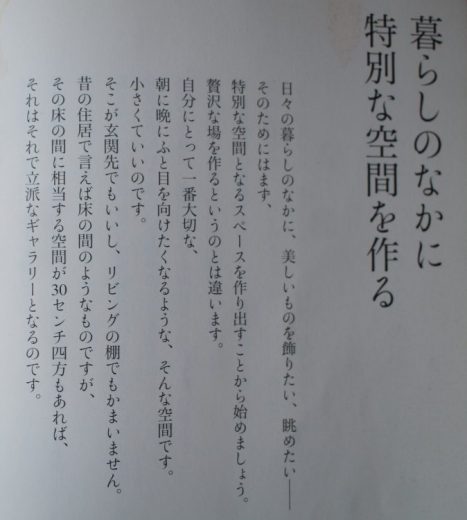 暮らしのなかに
特別な空間を作る
日々の暮らしのなかに、美しいものを飾りたい、眺めたい――
そのためにはまず、
特別な空間となるスペースを作り出すことから始めましょう。
贅沢な場を作るというのとは違います。
自分にとって一番大切な、
朝に晩にふと目を向けたくなるような、そんな空間です。
小さくていいのです。
そこが玄関先でもいいし、リビングの棚でもかまいません。
昔の住居で言えば床の間のようなものですが、
その床の間に相当する空間が30センチ四方もあれば、
それはそれで立派なギャラリーとなるのです。